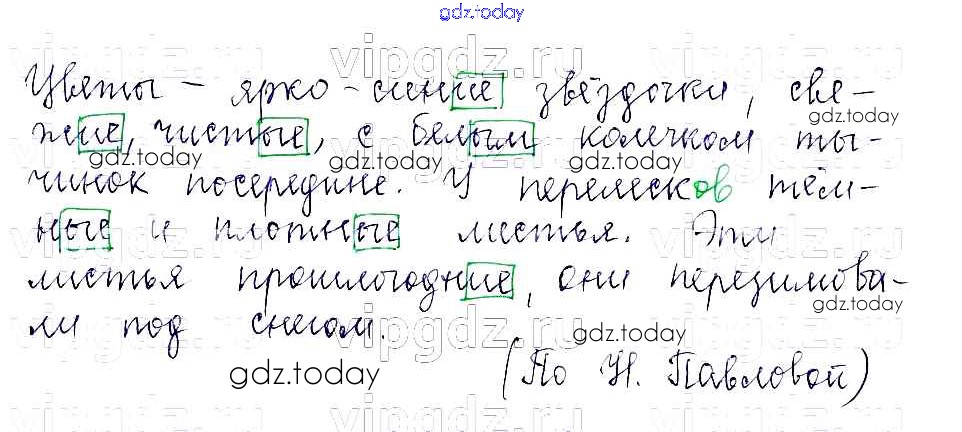 gdz.today
Цветы – ярко-синие звёздочки, све-
жие, чистые, с белым колечком ты-
чинок посередине. У перелесков тём-
ные и плотные листья. Эти
листья прошлогодние, они перезимова-
ли под снегом.
(По Н. Павловой)
vipgdz.ru
gdz.today
gdz.today
gdz.today
gdz.today
gdz.today
gdz.today
gdz.today